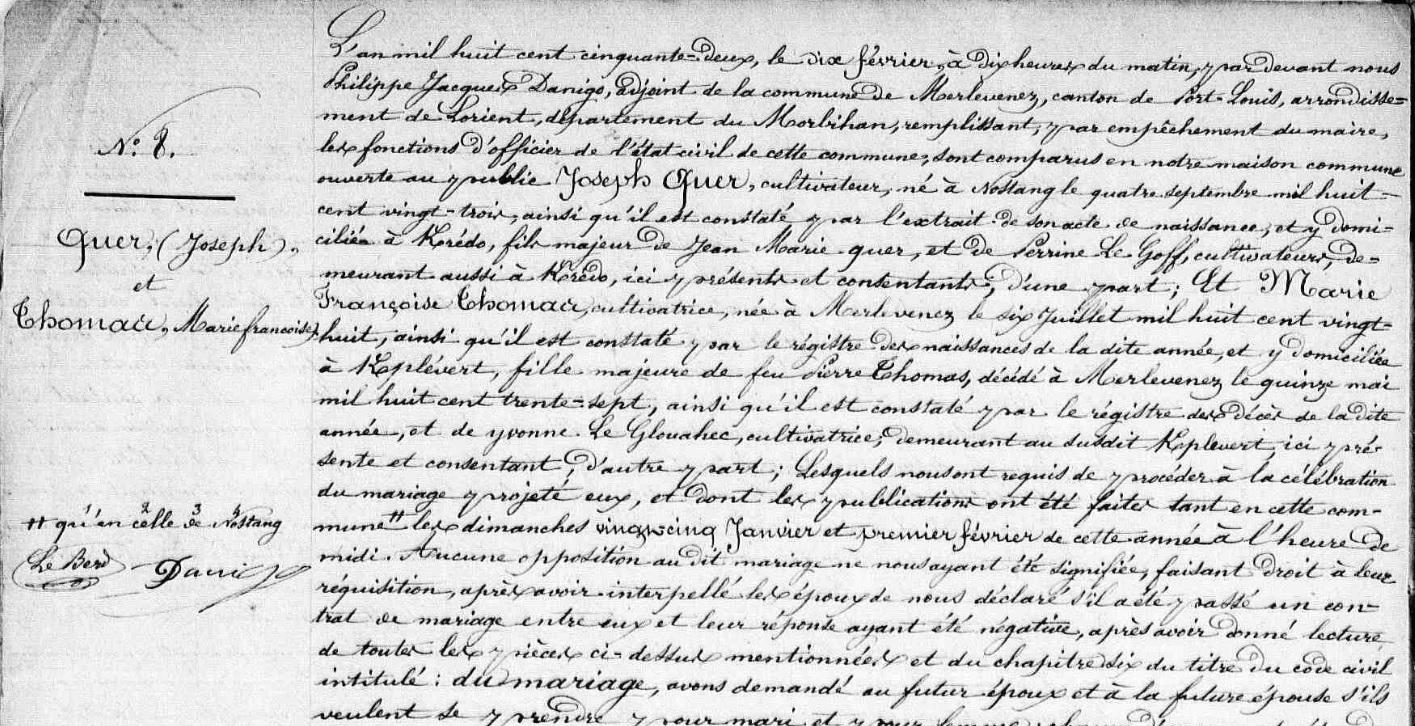 N.° 8.
Quer, (Joseph),
et
Thomas, Marie francoise,
L'an mil huit cent cinquante-deux, le dix février, à dix heures du matin, par devant nous
Philippe Jacques Danigo, adjoint de la commune de Merlevenez, canton de Port-Louis, arrondisse=
ment de Lorient, département du Morbihan, remplissant, par empêchement du maire,
les fonctions d'officier de l'état civil de cette commune, sont comparus en notre maison commune
ouverte au public Joseph Quer, cultivateur, né à Nostang le quatre septembre mil huit-
cent vingt-trois, ainsi qu'il est constaté par l'extrait de son acte de naissance, et y domi-
cilié à Krédo, fils majeur de Jean Marie quer, et de Perrine Le Goff, cultivateurs, de=
meurant aussi à Krédo, ici présents et consentants, d'une part; Et Marie
Françoise Thomas, cultivatrice, née à Merlevenez le six Juillet mil huit cent vingt-
huit, ainsi qu'il est constaté par le régistre des naissances de la dite année, et y domiciliée
à Kplévert, fille majeure de feu Pierre Thomas, décédé à Merlevenez le quinze mai
mil huit cent trente-sept, ainsi qu'il est constaté par le régistre des décès de la dite
année, et de yvonne Le Glouahec, cultivatrice, demeurant au susdit Kplevert, ici pré-
sente et consentant, d'autre part; Lesquels nous ont requis de procéder à la célébration
du mariage projeté eux, et dont les publications ont été faites tant en cette com-
mune # les dimanches vingt-cinq Janvier et premier février de cette année à l'heure de
midi. Aucune opposition au dit mariage ne nous ayant été signifiée, faisant droit à leur
réquisition, après avoir interpellé les époux de nous déclaré s'il a été passé un con-
trat de mariage entre eux et leur réponse ayant été négative, après avoir donné lecture
de toutes les pièces ci-dessus mentionnées et du chapitre six du titre du code civil
intitulé: du mariage, avons demandé au futur époux et à la future épouse s'ils
veulent se prendre pour mari et pour femme
# qu'en celle de Nostang
1 2 3 4
Le Berd
Dani